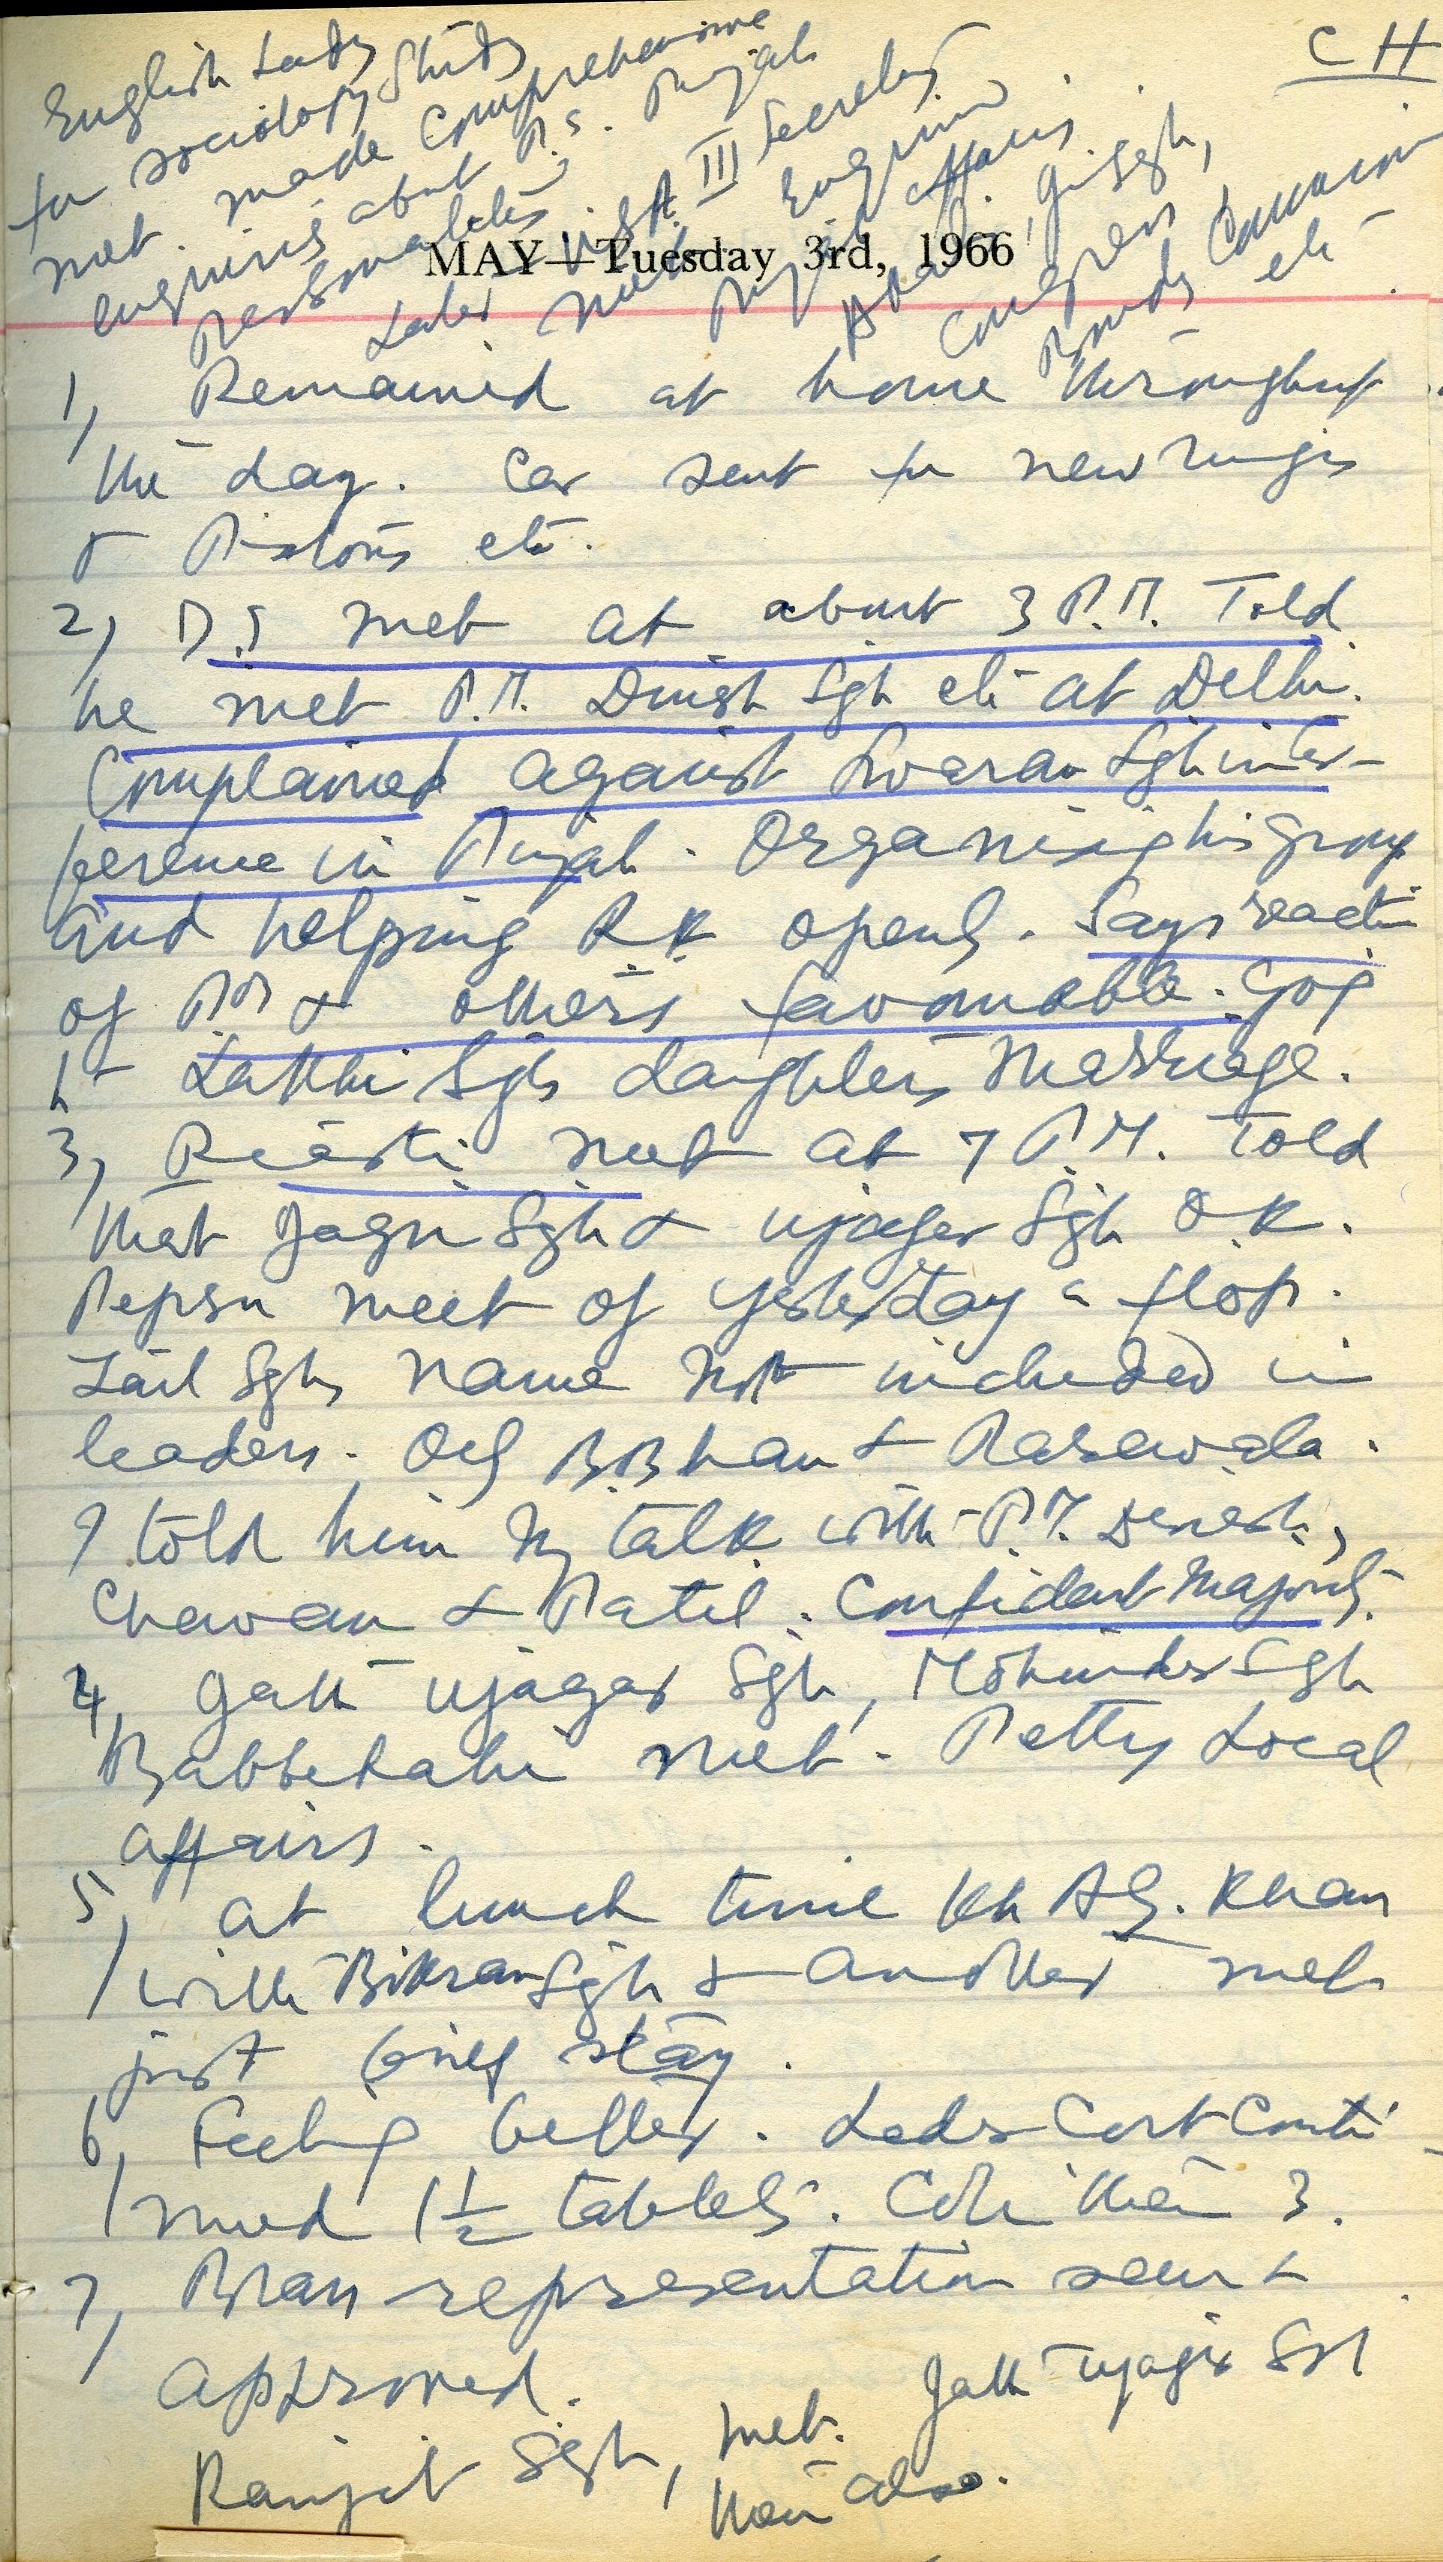 CH
English Lady
for sociology study
met. made comprehensive
enquiries about P.S. Punjab
Personalities
Later US A III Secretary
met. Enquiries
Punjab affairs.
Akalis, G. Sgh,
Congress
Boundary Commission
etc
MAY—Tuesday 3rd, 1966
1, Remained at home throughout
the day. Car sent for new rings
& Pistons etc.
2, D.S met at about 3 P.M. Told
he met P.M. Dinesh Sgh etc at Delhi.
Complained against Swaran Sgh inter-
ference in Punjab. Organising his group
and helping R.K openly. Says reacti
of PM & others favourable. Going
to Lakhi Sgh's daughter's marriage.
3, Riasti met at 7 P.M. Told
that Jagir Sgh & Ujagar Sgh O.K.
Pepsu meet of yesterday a flop.
Zail Sgh's name not included in
leaders. Only B.Bhan & Rarewala.
I told him my talk with P.M. Dinesh,
Chavan & Patil. Confident Majority.
4, Jath Ujagar Sgh, Mohinder Sgh
Babbehali met. Petty Local
affairs.
5, At lunch time Kh A G. Khan
with Bikram Sgh & another met
just brief stay.
6, Feeling better. Leder Cort Conti-
nued 1½ tablets. Coli then 3.
7, Bran representation seen &
approved.
Ranjit Sgh, met. Jath Ujagir Sgh
then also.